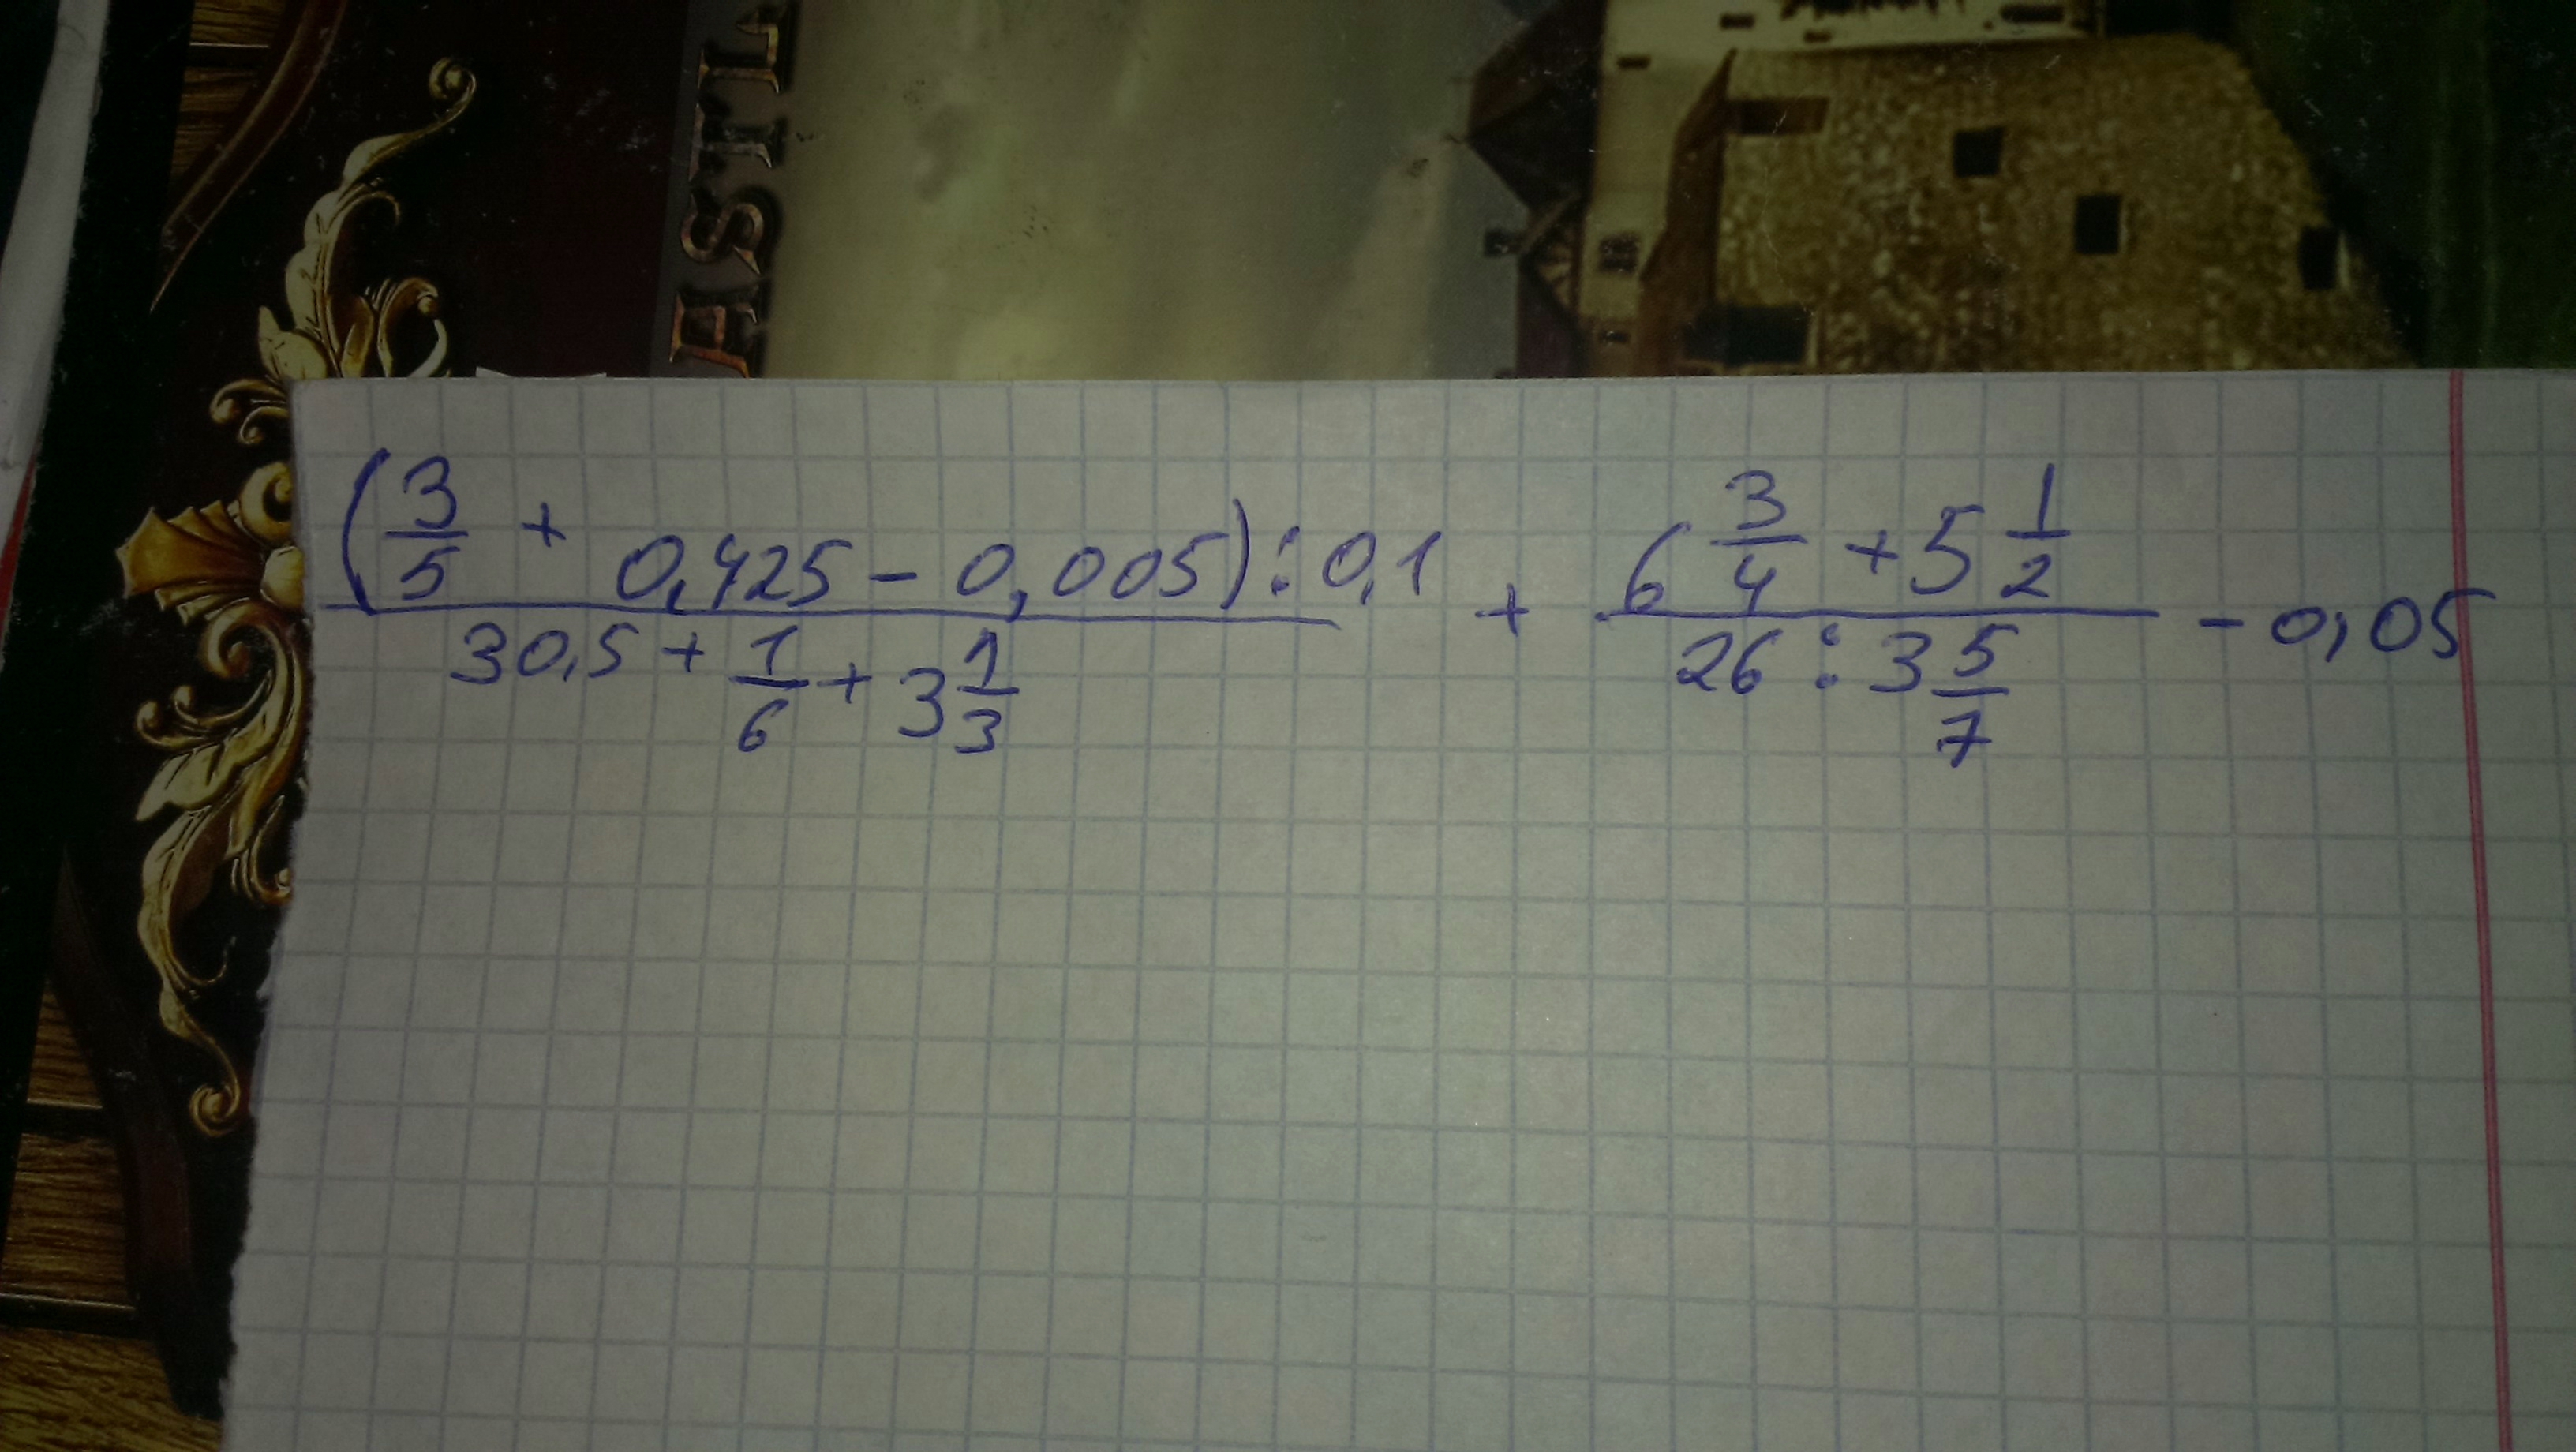 ASTL
(3/5 + 0,425 - 0,005) : 0,1 / 30,5 + 1/6 + 3 1/3 + 6 3/4 + 5 1/2 / 26 : 3 5/7 - 0,05